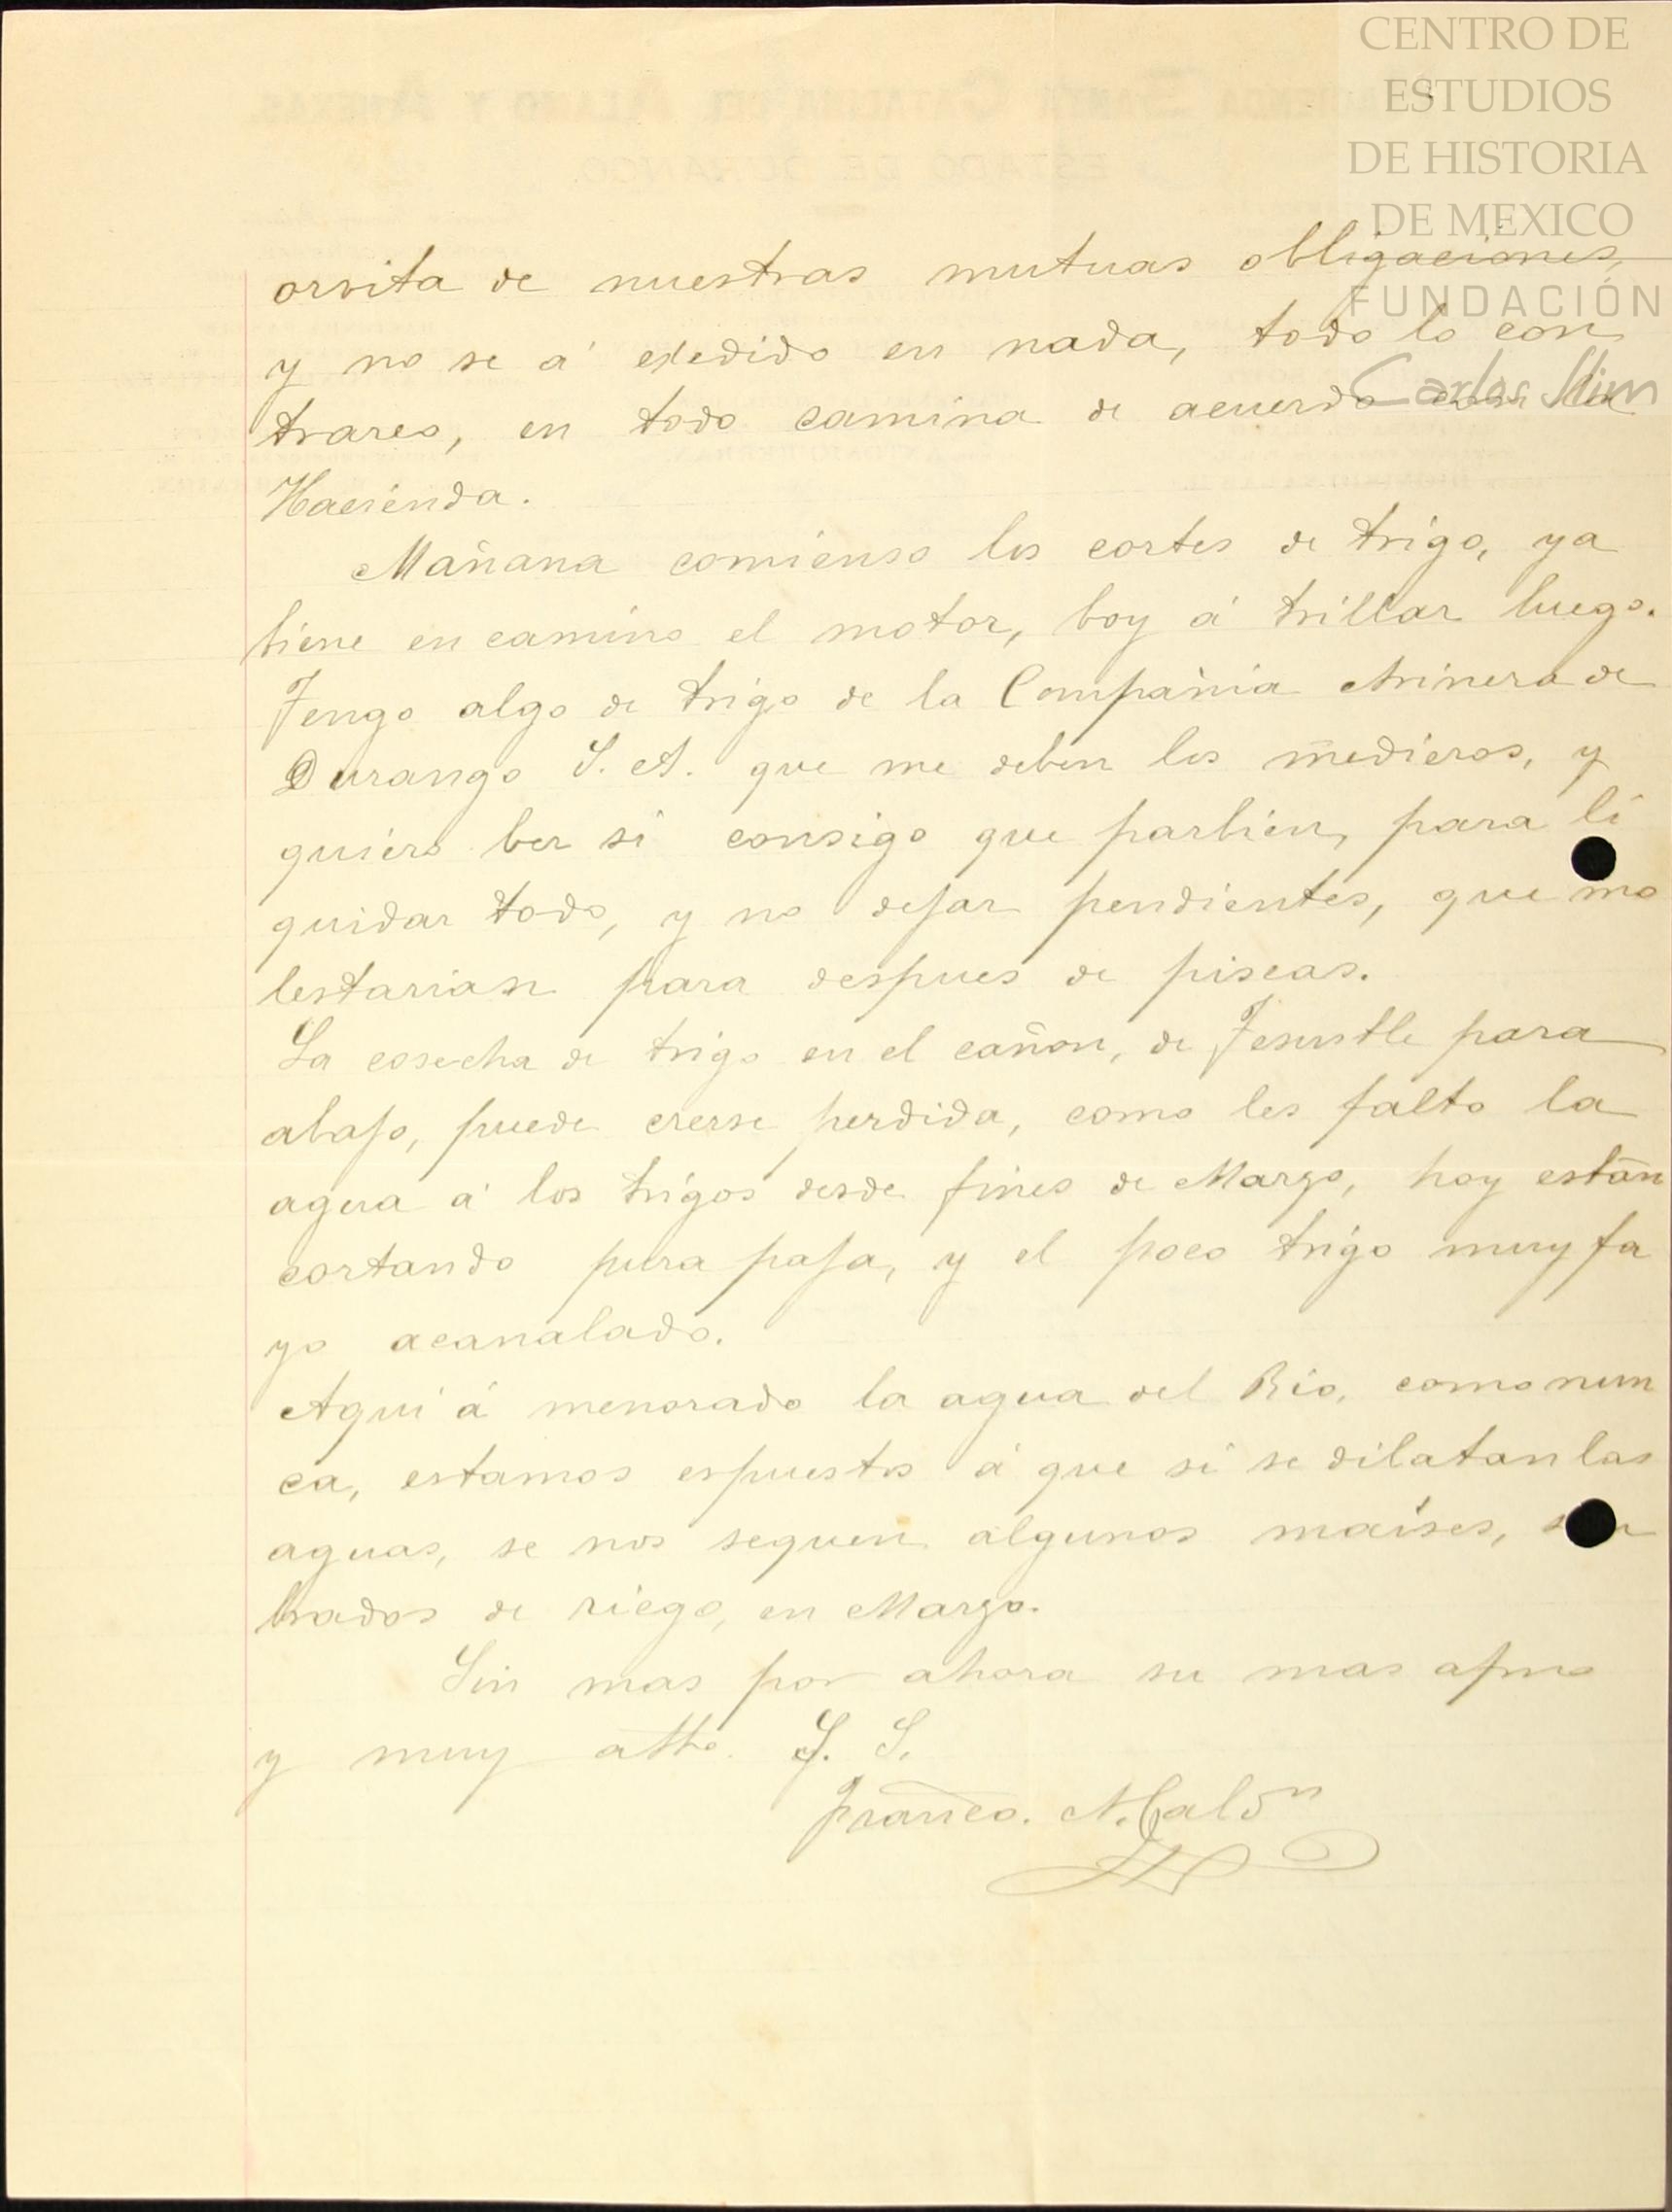 CENTRO DE
ESTUDIOS
DE HISTORIA
DE MEXICO
FUNDACIÓN
Carlos Slim
ESTADO DE DURANGO.
orvita de nuestras mutuas obligaciones,
y no se á exedido en nada, todo lo con
trareo, en todo camina de acuerdo con la
Hacienda.
Mañana comienso los cortes de trigo, ya
biene en camino el motor, boy á trillar luego.
Tengo algo de trigo de la Compañia Arinera de
Durango S. A. que me deben los medieros, y
quiero ber si consigo que parbien, para li
quidar todo, y no dejar pendientes, que mo
lestarian para despues de piscas.
La cosecha de trigo en el cañon, de para
abajo, puede crerse perdida, como les falto la
agua á los trigos desde fines de Marzo, hoy están
cortando pura paja, y el poco trigo muy fa
yo acanalado.
Aqui á menorado la agua del Rio, como nun
ca, estamos espuestos á que si se dilatan las
aguas, se nos sequen algunos maises,
brados de riego, en Marzo.
Sin mas por ahora su mas afmo
y muy atto. S. S.
Franco. N. Calón